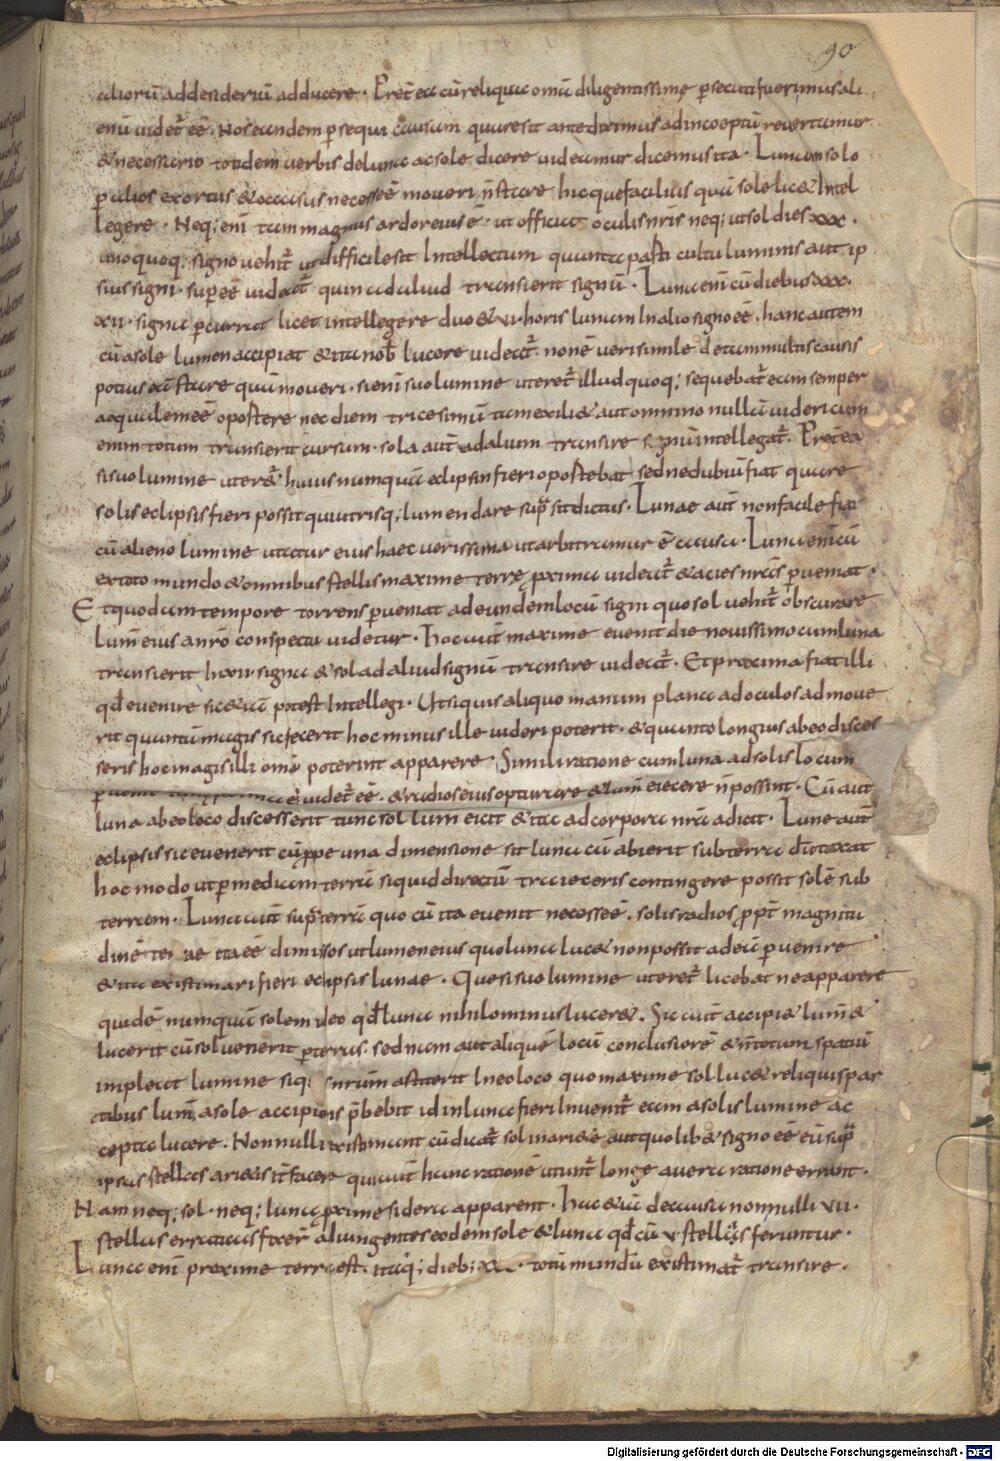 90
aliorū addesiderium adducere · Pret̄ ea cū reliqua omia diligentissime p̄secuti fuerimus ali
enū videt̄ eē · Nos eundem p̄sequi causam quaresit antediximus ad incoeptū revertamur
& necessario totidem verbis deluna ac sole dicere videamur dicemus ita · Lunam solo
p alios exortus & occasus necesseē moveri n̄ stare hicque facilius quā sole lic& Intel
legere · Neq; eni tam magnus ardor eius ē · ut officiat oculis nr̄is neq; ut sol dies xxx ·
unoquoq; signo vehit̄ ut difficile sit Intellectum quanta pasti cultu luminis aut ip
sius signi · sup eē videat̄ quin ad aliud transierit signū · Luna eni cū diebus xxx ·
xii · signa p̄currat licet intellegere duo & vi · horis lunam In alio signo eē · hanc autem
cū a sole lumen accipiat & ita nob̄ lucere videat̄ · non ē verisimile de tam multis causis
potius eā stare quā moveri · si eni suo lumine uteret̄ illud quoq; sequebat̄ eam semper
aequalem eē oportere nec diem tricesimū tam exilē aut omnino nullā videri cum
enim totum transierit cursum · sola aut ad alum transire signū intellegat̄ · Pret̄ ea
si suo lumine uter&̄ huius numquā eclipsin fieri oportebat sed ne dubiū fiat quare
solis eclipsis fieri possit qui utrisq; lumen dare supra sit dictus · Lunae aut non facile fiat
cū alieno lumine utatur eius haec verissima ut arbitramur ē causa · Luna enī cū
ex toto mundo & omnibus stellis maxime terrę p̄xima videat̄ & acies nr̄as p̄veniat ·
Et quodam tempore torrens p̄veniat ad eundem locū signi quo sol vehit̄ obscurare
Lum̄ eius a nr̄o conspectu videtur · Hoc aut maxime evenit die novissimo cum luna
transierit h xii signa & sol ad aliud signū transire videat̄ · Et proxima fiat illi
qd̄ evenire sic & iā potest Intellegi · Ut si quis aliquo manum plana ad oculos admove
rit quantū magis sic fecerit hoc minus ille videri poterit · & quanto longius ab eo disces
seris hoc magis illi omā poterint apparere · Simili ratione cum luna ad solis locum
videt̄ eē · & radios eius opturare & lum̄ eiecere n̄ possint · Cū aut
luna ab eo loco discesserit tunc sol lum̄ eicit & ita ad corpora nr̄a adicit · Lune aut
eclipsis sic evenerit cū p̄pe una dimensione sit luna cū abierit sub terra dūtaxat
hoc modo ut p mediam terrā siquid directū traieceris contingere possit solē sub
terram · Luna aut supra terrā quo cū ita evenit necesseē · solis radios p̄pt̄ magnitu
dinē terrae ita eē dimissos ut lumen eius quo luna luc& non possit ad eā p̄venire
& ita existimari fieri eclipsis lunae · Que si suo lumine uteret̄ licebat ne apparere
quidē numquā solem ideo qd̄ luna nihilominus lucer& · Sic aut accipi& lum̄ &
lucerit cū sol venerit p̄ terras · sed nam aut aliquē locū conclusiorē & n̄ totum spatiū
impleat lumine siqi snr̄um astiterit In eo loco quo maxime sol luc& reliquis par
tibus lum̄ a sole accipiens p̄bebit id in luna fieri Invenit̄ eam a solis lumine ac
cepta lucere · Nonnulli existimant cū dicat̄ sol in ari&ē aut quo lib& signo eē eū supra
ipsas stellas ari&is it̄ facere qui aut hanc rationē utunt̄ longe a vera ratione errant ·
Nam neq; sol · neq; luna p̄xime sidera apparent · Hac & iā de causa nonnulli vii ·
stellas erraticas fixer̄ adiungentes eodem sole & luna qd̄ cū v stellis feruntur ·
Luna eni proxime terra est · itaq; dieb; xxx · totū mundū existimat̄ transire ·
Digitalisierung gefördert durch die Deutsche Forschungsgemeinschaft · DFG